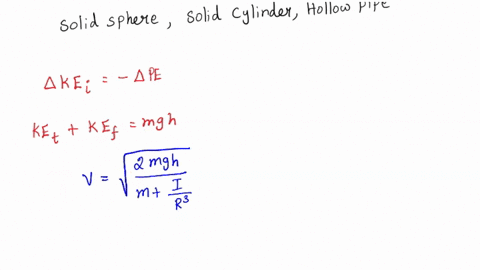 Solid sphere, Solid Cylinder, Hollow pipe
ΔKE_i = -ΔPE
KE_t + KE_f = mgh
V = √(2mgh / (m + I/R^3))